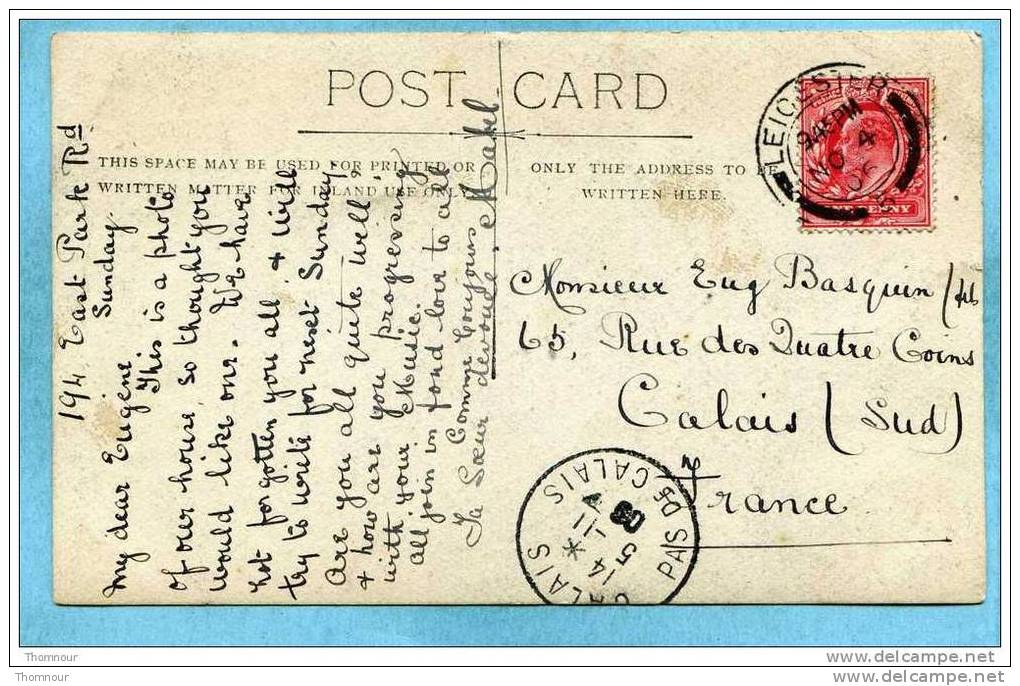 POST CARD
THIS SPACE MAY BE USED FOR PRINTED OR
WRITTEN MATTER FOR INLAND USE ONLY.
ONLY THE ADDRESS TO BE
WRITTEN HERE.
LEICESTER
9.45PM
NO 4
06
PENNY
194, East Park Rd
Sunday
My dear Eugène
This is a photo
of our house, so thought you
would like one. We have
not forgotten you all & will
try to write for next Sunday.
Are you all quite well,
& how are you progressing
with your Music.
all join in fond love to all
Ta Comme toujours
Sœur devouée, Mabel.
Monsieur Eug Basquin/fils
65, Rue des Quatre Coins
Calais (Sud)
France
CALAIS
14 *
5-11
06
PAS DE CALAIS
Thomnour
Thomnour
www.delcampe.net
www.delcampe.net